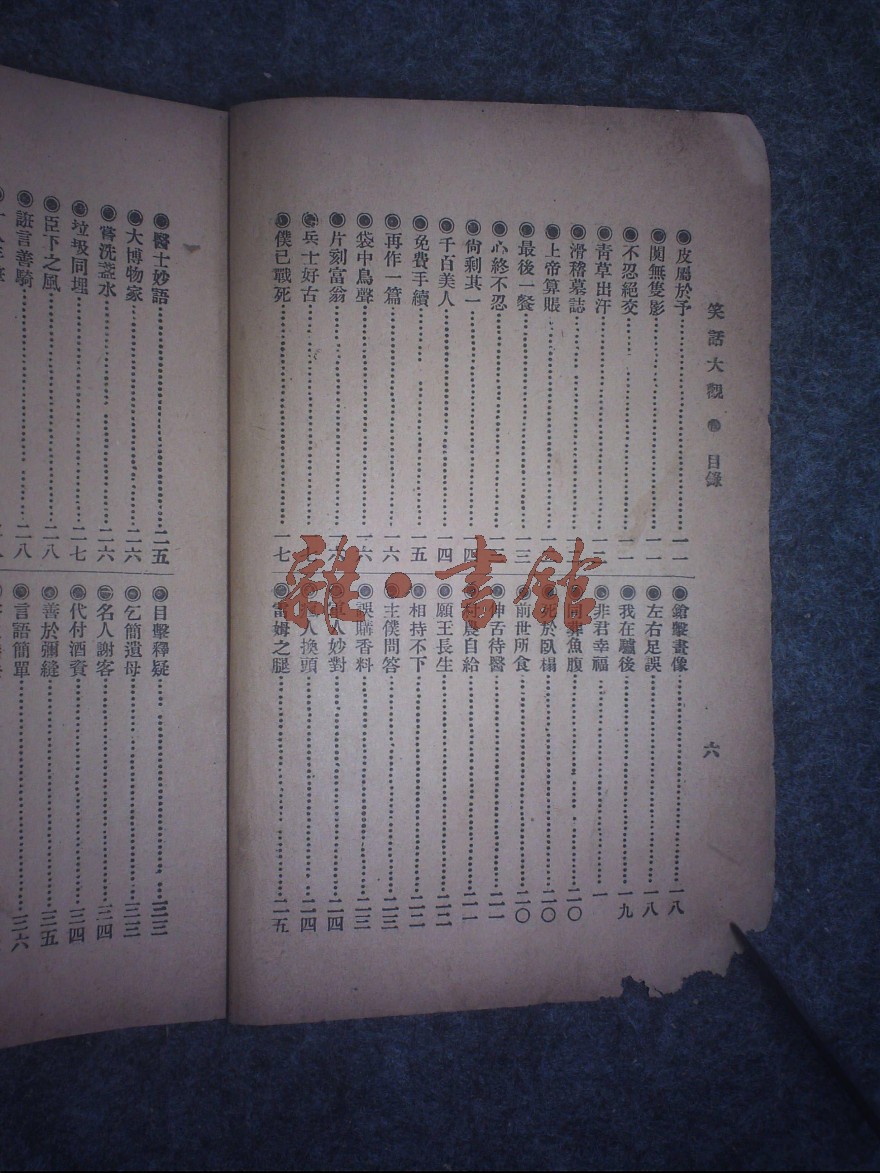 笑話大觀 目錄 六
皮屬於予 一一
闃無隻影 一一
不忍絕交 一一
青草出汗 一二
滑稽墓誌
上帝算賬
最後一餐 一三
心終不忍
尚剩其一
千百美人 一四
免費手續 一五
再作一篇 一六
袋中鳥聲 一六
片刻富翁 一六
兵士好古
僕已戰死 一七
鎗擊畫像 一八
左右足誤 一八
我在驢後 一九
非君幸福
同葬魚腹 二〇
死於臥榻 二〇
前世所食 二〇
伸舌待醫 二一
村農自給 二一
願王長生 二二
相持不下 二二
主僕問答 二三
誤購香料 二三
軍人妙對 二四
人換頭 二四
雷姆之腿 二五
醫士妙語 二五
大博物家 二六
嘗洗盞水 二六
垃圾同埋 二七
臣下之風 二八
誑言善騎 二八
目擊釋疑 三三
乞簡遺母 三三
名人謝客 三四
代付酒資 三四
善於彌縫 三五
言語簡單 三六
雜·書館